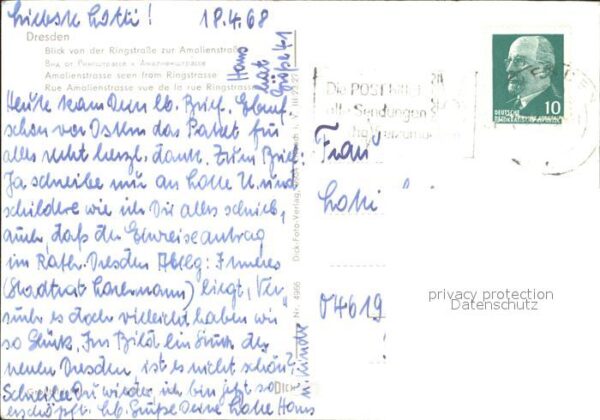 Liebste Lotti! 18.4.68
Dresden
Blick von der Ringstraße zur Amalienstraße
Amalienstrasse seen from Ringstrasse
Rue Amalienstrasse vue de la rue Ringstrasse
Heute kam Dein lb. Brief. Ebenf.
schon vor Ostern das Paket für
alles recht herzl. Dank. Zum Brief:
Ja schreibe nur an Lotte U. und
schildere wie ich Dir alles schrieb,
auch, daß der Einreiseantrag
im Rath. Dresden Abtlg: Inneres
(Stadtrat) liegt, Ver-
suche es doch vielleicht haben wir
so Glück. Im Bild ein Stück des
neuen Dresden, ist es nicht schön?
Schreibe Du wieder, ich bin jetzt so
erschöpft. Lb. Grüße Deine Hans
Hans
hat
Größe 41
u. Kinder
Dick-Foto-Verlag
Nr. 4966
Die POST bittet
alle Sendungen
10
Frau
Lotti
04619
privacy protection
Datenschutz